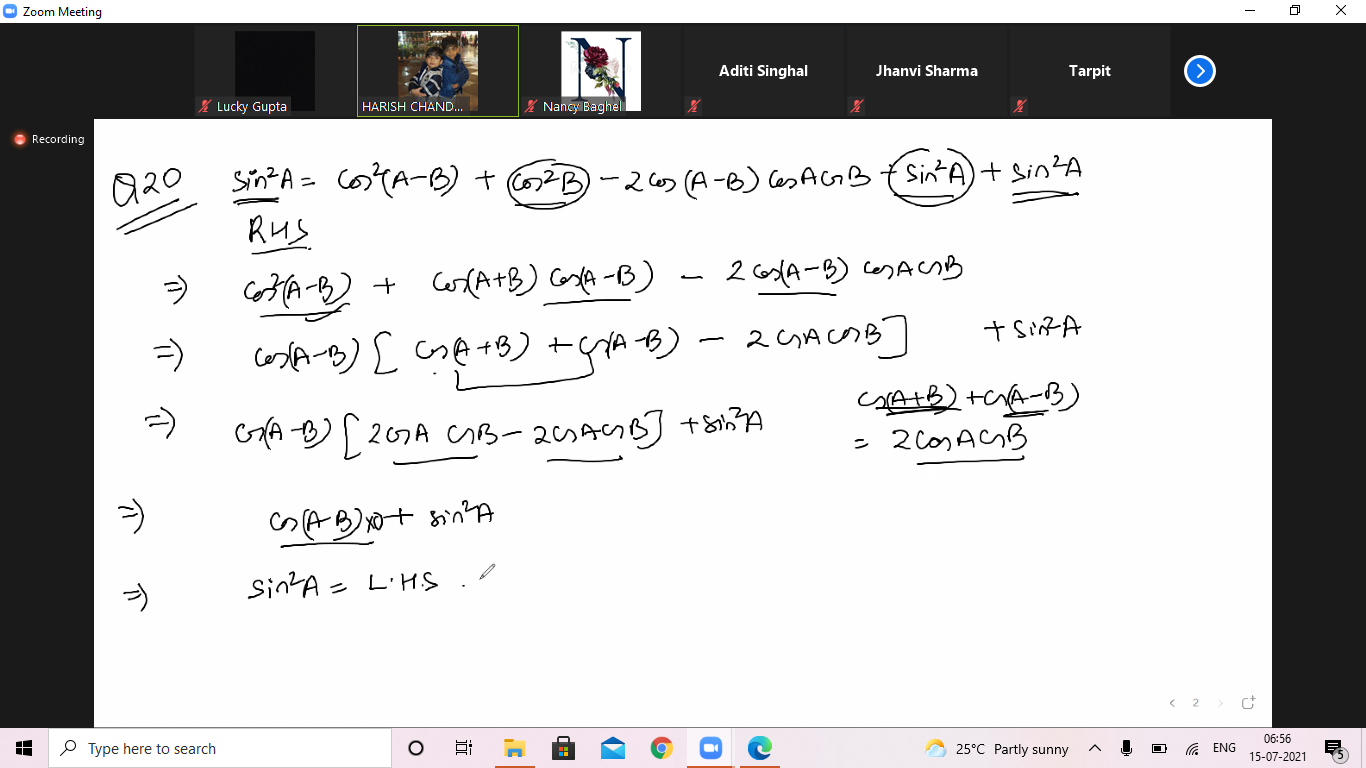 Zoom Meeting
Lucky Gupta
HARISH CHAND...
N
Nancy Baghel
Aditi Singhal
Jhanvi Sharma
Tarpit
Recording
Q20 sin²A = cos²(A-B) + cos²B - 2cos(A-B) cosAcosB - sin²A + sin²A
RHS
⇒ cos²(A-B) + cos(A+B) cos(A-B) - 2cos(A-B) cosAcosB
+ sin²A
⇒ cos(A-B) [cos(A+B) + cos(A-B) - 2cosAcosB]
cos(A+B) + cos(A-B)
⇒ cos(A-B) [2cosA cosB - 2cosAcosB] + sin²A
= 2cosAcosB
⇒ cos(A-B)×0 + sin²A
⇒ sin²A = L.H.S.
2
Type here to search
25°C Partly sunny
ENG
06:56
15-07-2021
5